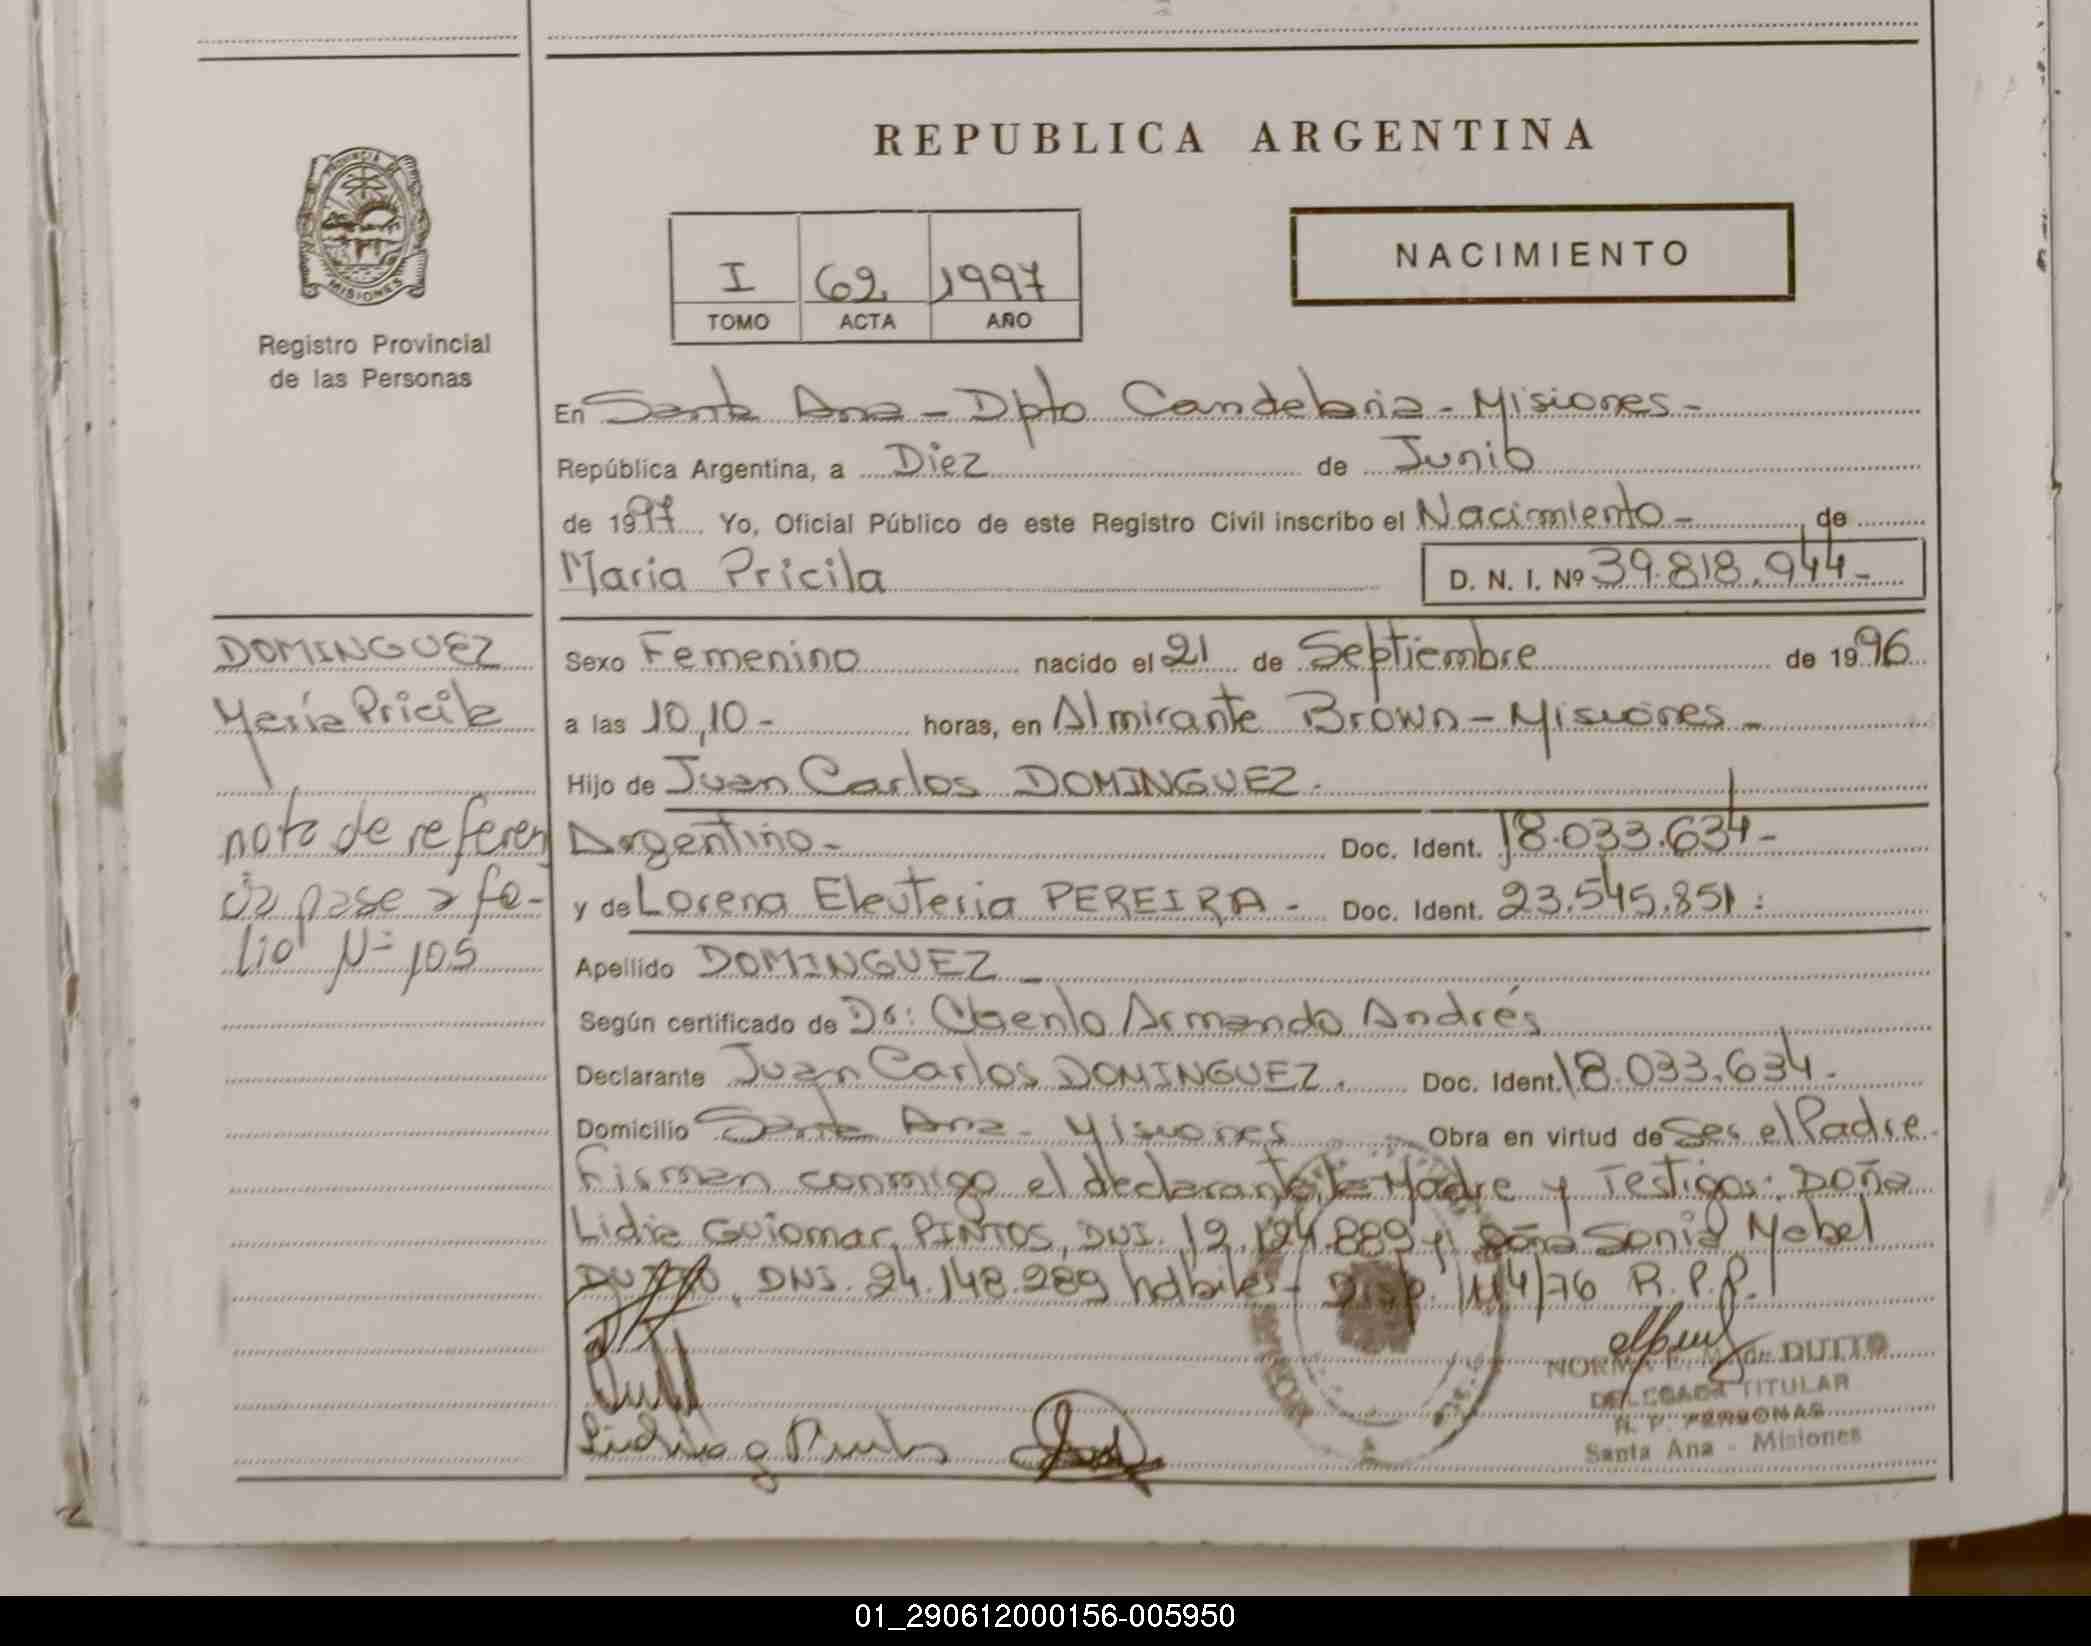 REPUBLICA ARGENTINA
PROVINCIA DE
MISIONES
Registro Provincial
de las Personas
I 62 1997
TOMO ACTA AÑO
NACIMIENTO
En Santa Ana - Dpto Candelaria - Misiones -
República Argentina, a Diez de Junio
de 1997 Yo, Oficial Público de este Registro Civil inscribo el Nacimiento - de
Maria Pricila D. N. I. Nº 39.818.944 -
DOMINGUEZ
María Pricila
nota de referen
cia pase a fo-
lio Nº 105
Sexo Femenino nacido el 21 de Septiembre de 1996
a las 10,10 - horas, en Almirante Brown - Misiones -
Hijo de Juan Carlos DOMINGUEZ.
Argentino - Doc. Ident. 18.033.634 -
y de Lorena Eleuteria PEREIRA - Doc. Ident. 23.545.851 :
Apellido DOMINGUEZ -
Según certificado de Dr: Armando Andrés
Declarante Juan Carlos DOMINGUEZ. Doc. Ident. 18.033.634 -
Domicilio Santa Ana - Misiones Obra en virtud de Ser el Padre
Firman conmigo el declarante, la Madre y Testigos: Doña
Lidia Guiomar PINTOS, DNI. 12.124.889 y Doña Sonia Mabel
DNI. 24.148.289 habiles - Disp. 114/76 R.P.P.
NORMA E. M. de DUTTO
DELEGADA TITULAR
R. P. PERSONAS
Santa Ana - Misiones
01_290612000156-005950